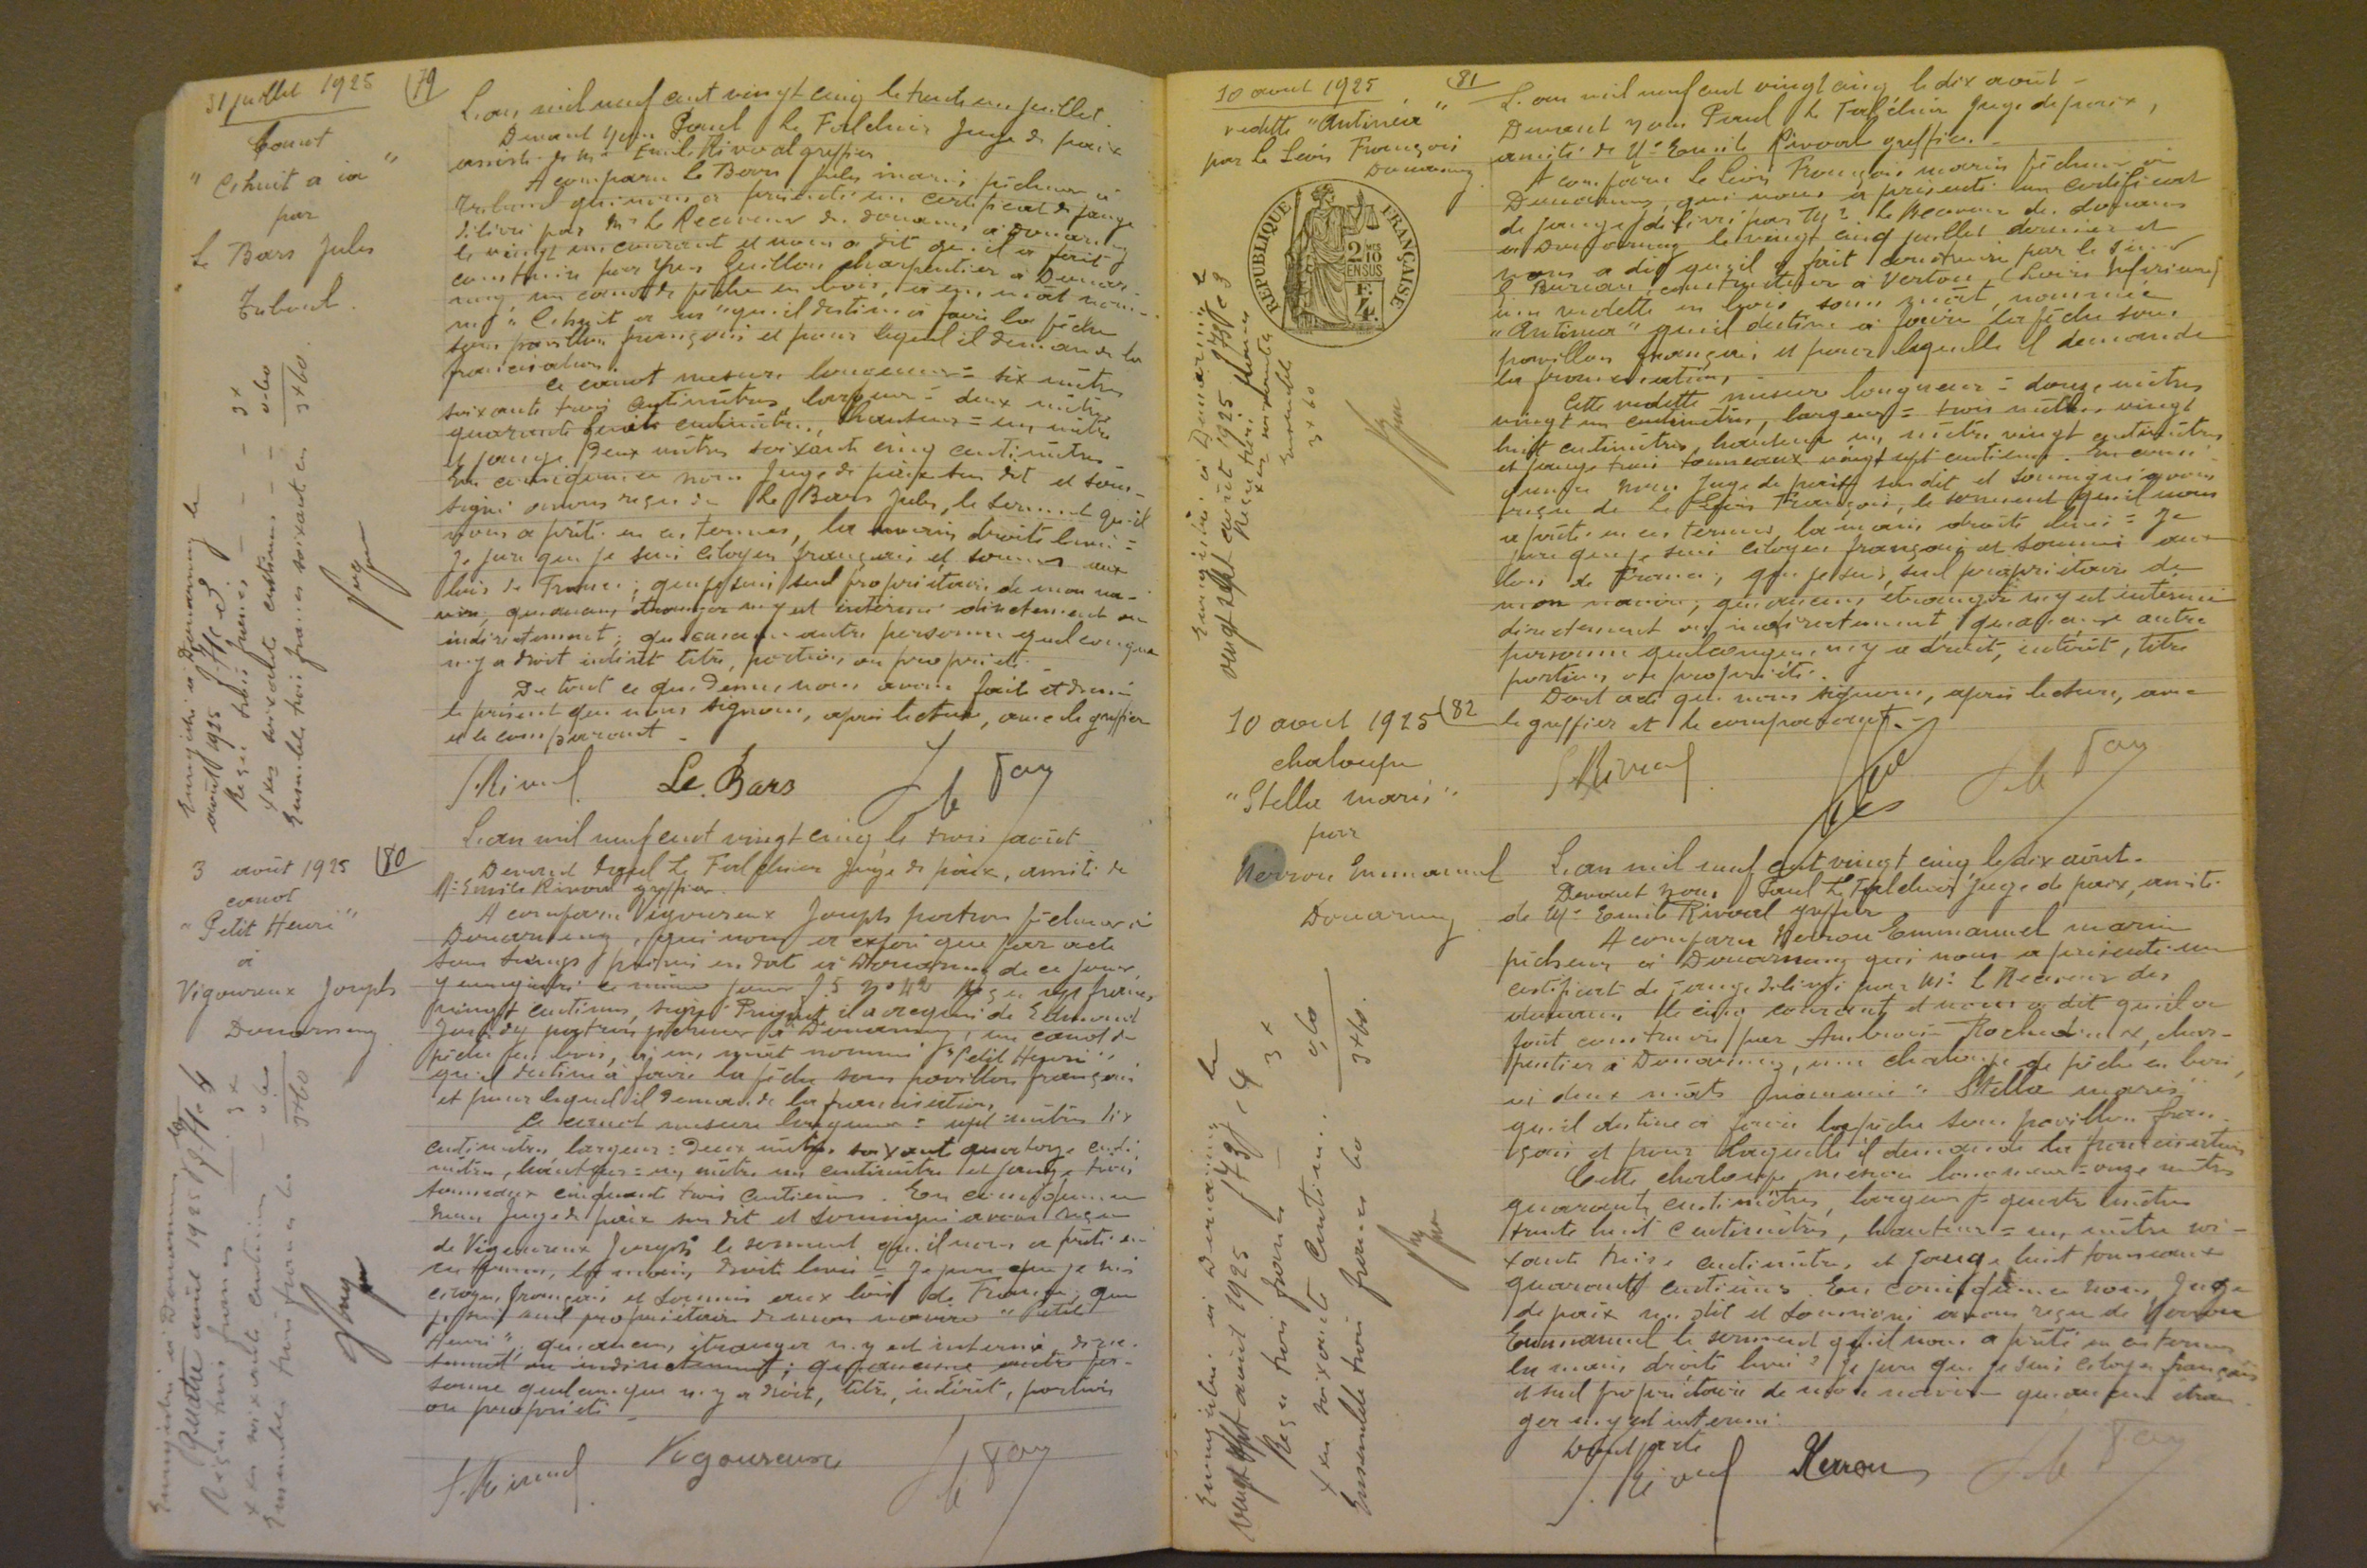 31 juillet 1925
79
Canot
"C'huit a ia"
par
Le Bars Jules
Tréboul.
Enregistré à Douarnenez le
août 1925
Reçu trois francs 3 ×
×es soixante centimes 0.60
Ensemble trois francs soixante cs 3×60.
L'an mil neuf cent vingt cinq le trente un juillet.
Devant nous Paul Le Falchier Juge de paix
assisté de Me Emile Rivoal greffier
A comparu Le Bars Jules marin pêcheur à
Tréboul qui nous a présenté un certificat de jauge
délivré par Mr le Receveur des douanes à Douarnenez
le vingt un courant et nous a dit qu'il a fait
construire par Yves Guillou charpentier à Douar-
nenez un canot de pêche en bois, à un mât nom-
mé "C'huit a ia" qu'il destine à faire la pêche
sous pavillon français et pour lequel il demande la
francisation.
Ce canot mesure longueur = six mètres
soixante trois centimètres, largeur = deux mètres
quarante huit centimètres, hauteur = un mètre
et jauge deux mètres soixante cinq centimètres
En conséquence nous Juge de paix sus dit et sous-
signé avons reçu de Le Bars Jules, le serment qu'il
nous a prêté en ces termes, la main droite levée =
Je jure que je suis citoyen français et soumis aux
lois de France; que je suis seul propriétaire de mon na-
vire, qu'aucun étranger n'y est intéressé directement ou
indirectement; qu'aucune autre personne quelconque
n'y a droit intérêt titre, portion ou propriété.
De tout ce que dessus nous avons fait et dressé
le présent que nous signons, après lecture, avec le greffier
et le comparant -
Rivoal Le Bars
3 août 1925
80
canot
"Petit Henri"
à
Vigoureux Joseph
Douarnenez
Enregistré à Douarnenez le
quatre août 1925
Reçu trois francs 3 ×
×es soixante centimes 0.60
Ensemble trois francs 60 3×60
L'an mil neuf cent vingt cinq le trois août
Devant Paul Le Falchier Juge de paix, assisté de
Me Emile Rivoal greffier.
A comparu Vigoureux Joseph patron pêcheur à
Douarnenez, qui nous a exposé que par acte
sous seings privés en date à Douarnenez de ce jour,
y enregistré le même jour no 42 Reçu sept francs
vingt centimes, signé il a acquis de Edmond
patron pêcheur à Douarnenez, un canot de
pêche en bois, à un mât nommé "Petit Henri"
qu'il destine à faire la pêche sous pavillon français
et pour lequel il demande la francisation.
Ce canot mesure longueur = sept mètres dix
centimètres, largeur: deux mètres soixante quatorze centi-
mètres, hauteur = un mètre un centimètre et jauge trois
tonneaux cinquante trois centièmes. En conséquence
nous Juge de paix sus dit et soussigné avons reçu
de Vigoureux Joseph le serment qu'il nous a prêté en
ces termes, la main droite levée = Je jure que je suis
citoyen français et soumis aux lois de France, que
je suis seul propriétaire de mon navire "Petit
Henri", qu'aucun étranger n'y est intéressé direc-
tement ou indirectement; qu'aucune autre per-
sonne quelconque n'y a droit, titre, intérêt, portion
ou propriété -
Rivoal Vigoureux
10 août 1925
81
vedette "Antinéa"
par Le Séis François
Douarnenez
REPUBLIQUE FRANÇAISE
2/10 EN SUS
F.
4.
Enregistré à Douarnenez le
vingt sept août 1925
Reçu trois francs
×es soixante
Ensemble
3×60
L'an mil neuf cent vingt cinq le dix août -
Devant nous Paul Le Falchier Juge de paix,
assisté de Me Emile Rivoal greffier.
A comparu Le Séis François marin pêcheur à
Douarnenez, qui nous a présenté un certificat
de jauge délivré par Mr le Receveur des douanes
à Douarnenez le vingt cinq juillet dernier et
nous a dit qu'il a fait construire par le sieur
constructeur à Vertou (Loire Inférieure)
une vedette en bois, sans mât, nommée
"Antinéa" qu'il destine à faire la pêche sous
pavillon français et pour laquelle il demande
la francisation.
Cette vedette mesure longueur = douze mètres
vingt un centimètres, largeur = trois mètres vingt
huit centimètres, hauteur un mètre vingt centimètres
et jauge trois tonneaux vingt sept centièmes. En consé-
quence nous Juge de paix sus dit et soussigné avons
reçu de Le Séis François, le serment qu'il nous
a prêté en ces termes la main droite levée = Je
jure que je suis citoyen français et soumis aux
lois de France, que je suis seul propriétaire de
mon navire, qu'aucun étranger n'y est intéressé
directement ou indirectement, qu'aucune autre
personne quelconque n'y a droit, intérêt, titre
portion ou propriété.
Dont acte que nous signons, après lecture, avec
le greffier et le comparant. -
Rivoal
10 août 1925
82
chaloupe
"Stella maris"
par
Kerrou Emmanuel
Douarnenez
Enregistré à Douarnenez le
vingt sept août 1925
Reçu trois francs 3 ×
×es soixante centimes. 0,60
Ensemble trois francs 60 3×60.
L'an mil neuf cent vingt cinq le dix août.
Devant nous Paul Le Falchier Juge de paix, assisté
de Me Emile Rivoal greffier
A comparu Kerrou Emmanuel marin
pêcheur à Douarnenez qui nous a présenté un
certificat de jauge délivré par Mr le Receveur des
douanes le cinq courant et nous a dit qu'il a
fait construire par Ambroise char-
pentier à Douarnenez, une chaloupe de pêche en bois,
à deux mâts nommée "Stella maris"
qu'il destine à faire la pêche sous pavillon fran-
çais et pour laquelle il demande la francisation
Cette chaloupe mesure longueur = onze mètres
quarante centimètres, largeur = quatre mètres
trente huit centimètres, hauteur = un mètre soi-
xante treize centimètres, et jauge huit tonneaux
quarante centièmes. En conséquence nous Juge
de paix sus dit et soussigné avons reçu de Kerrou
Emmanuel le serment qu'il nous a prêté en ces termes
la main droite levée = Je jure que je suis citoyen français
et seul propriétaire de mon navire qu'aucun étran-
ger n'y est intéressé.
Dont acte
Rivoal Kerrou